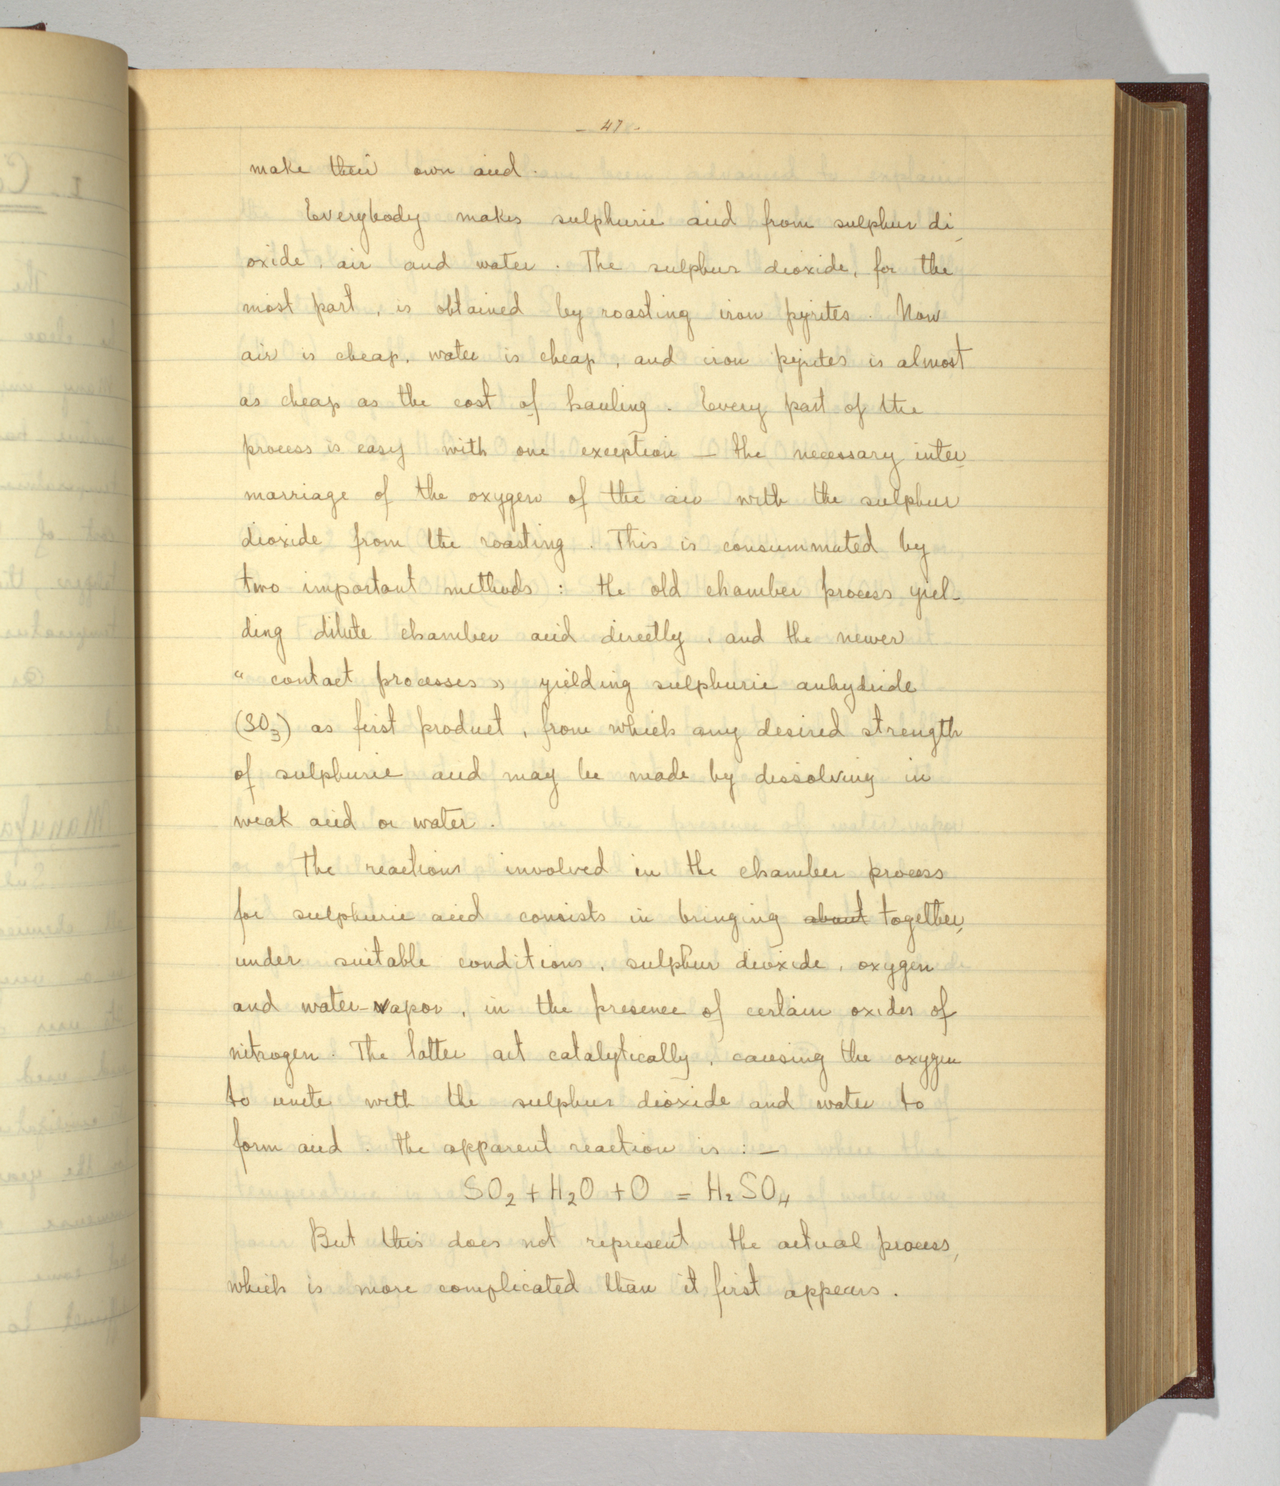 - 47 -
make their own acid.
Everybody makes sulphuric acid from sulphur di-
oxide, air and water. The sulphur dioxide, for the
most part, is obtained by roasting iron pyrites. Now
air is cheap, water is cheap, and iron pyrites is almost
as cheap as the cost of hauling. Every part of the
process is easy with one exception — the necessary inter-
marriage of the oxygen of the air with the sulphur
dioxide from the roasting. This is consummated by
two important methods : the old chamber process yiel-
ding dilute chamber acid directly, and the newer
" contact processes " yielding sulphuric anhydride
(SO₃) as first product, from which any desired strength
of sulphuric acid may be made by dissolving in
weak acid or water.
The reactions involved in the chamber process
for sulphuric acid consists in bringing about together,
under suitable conditions, sulphur dioxide, oxygen
and water-vapor, in the presence of certain oxides of
nitrogen. The latter act catalytically, causing the oxygen
to unite with the sulphur dioxide and water to
form acid. The apparent reaction is : —
SO₂ + H₂O + O = H₂SO₄
But this does not represent the actual process,
which is more complicated than it first appears.